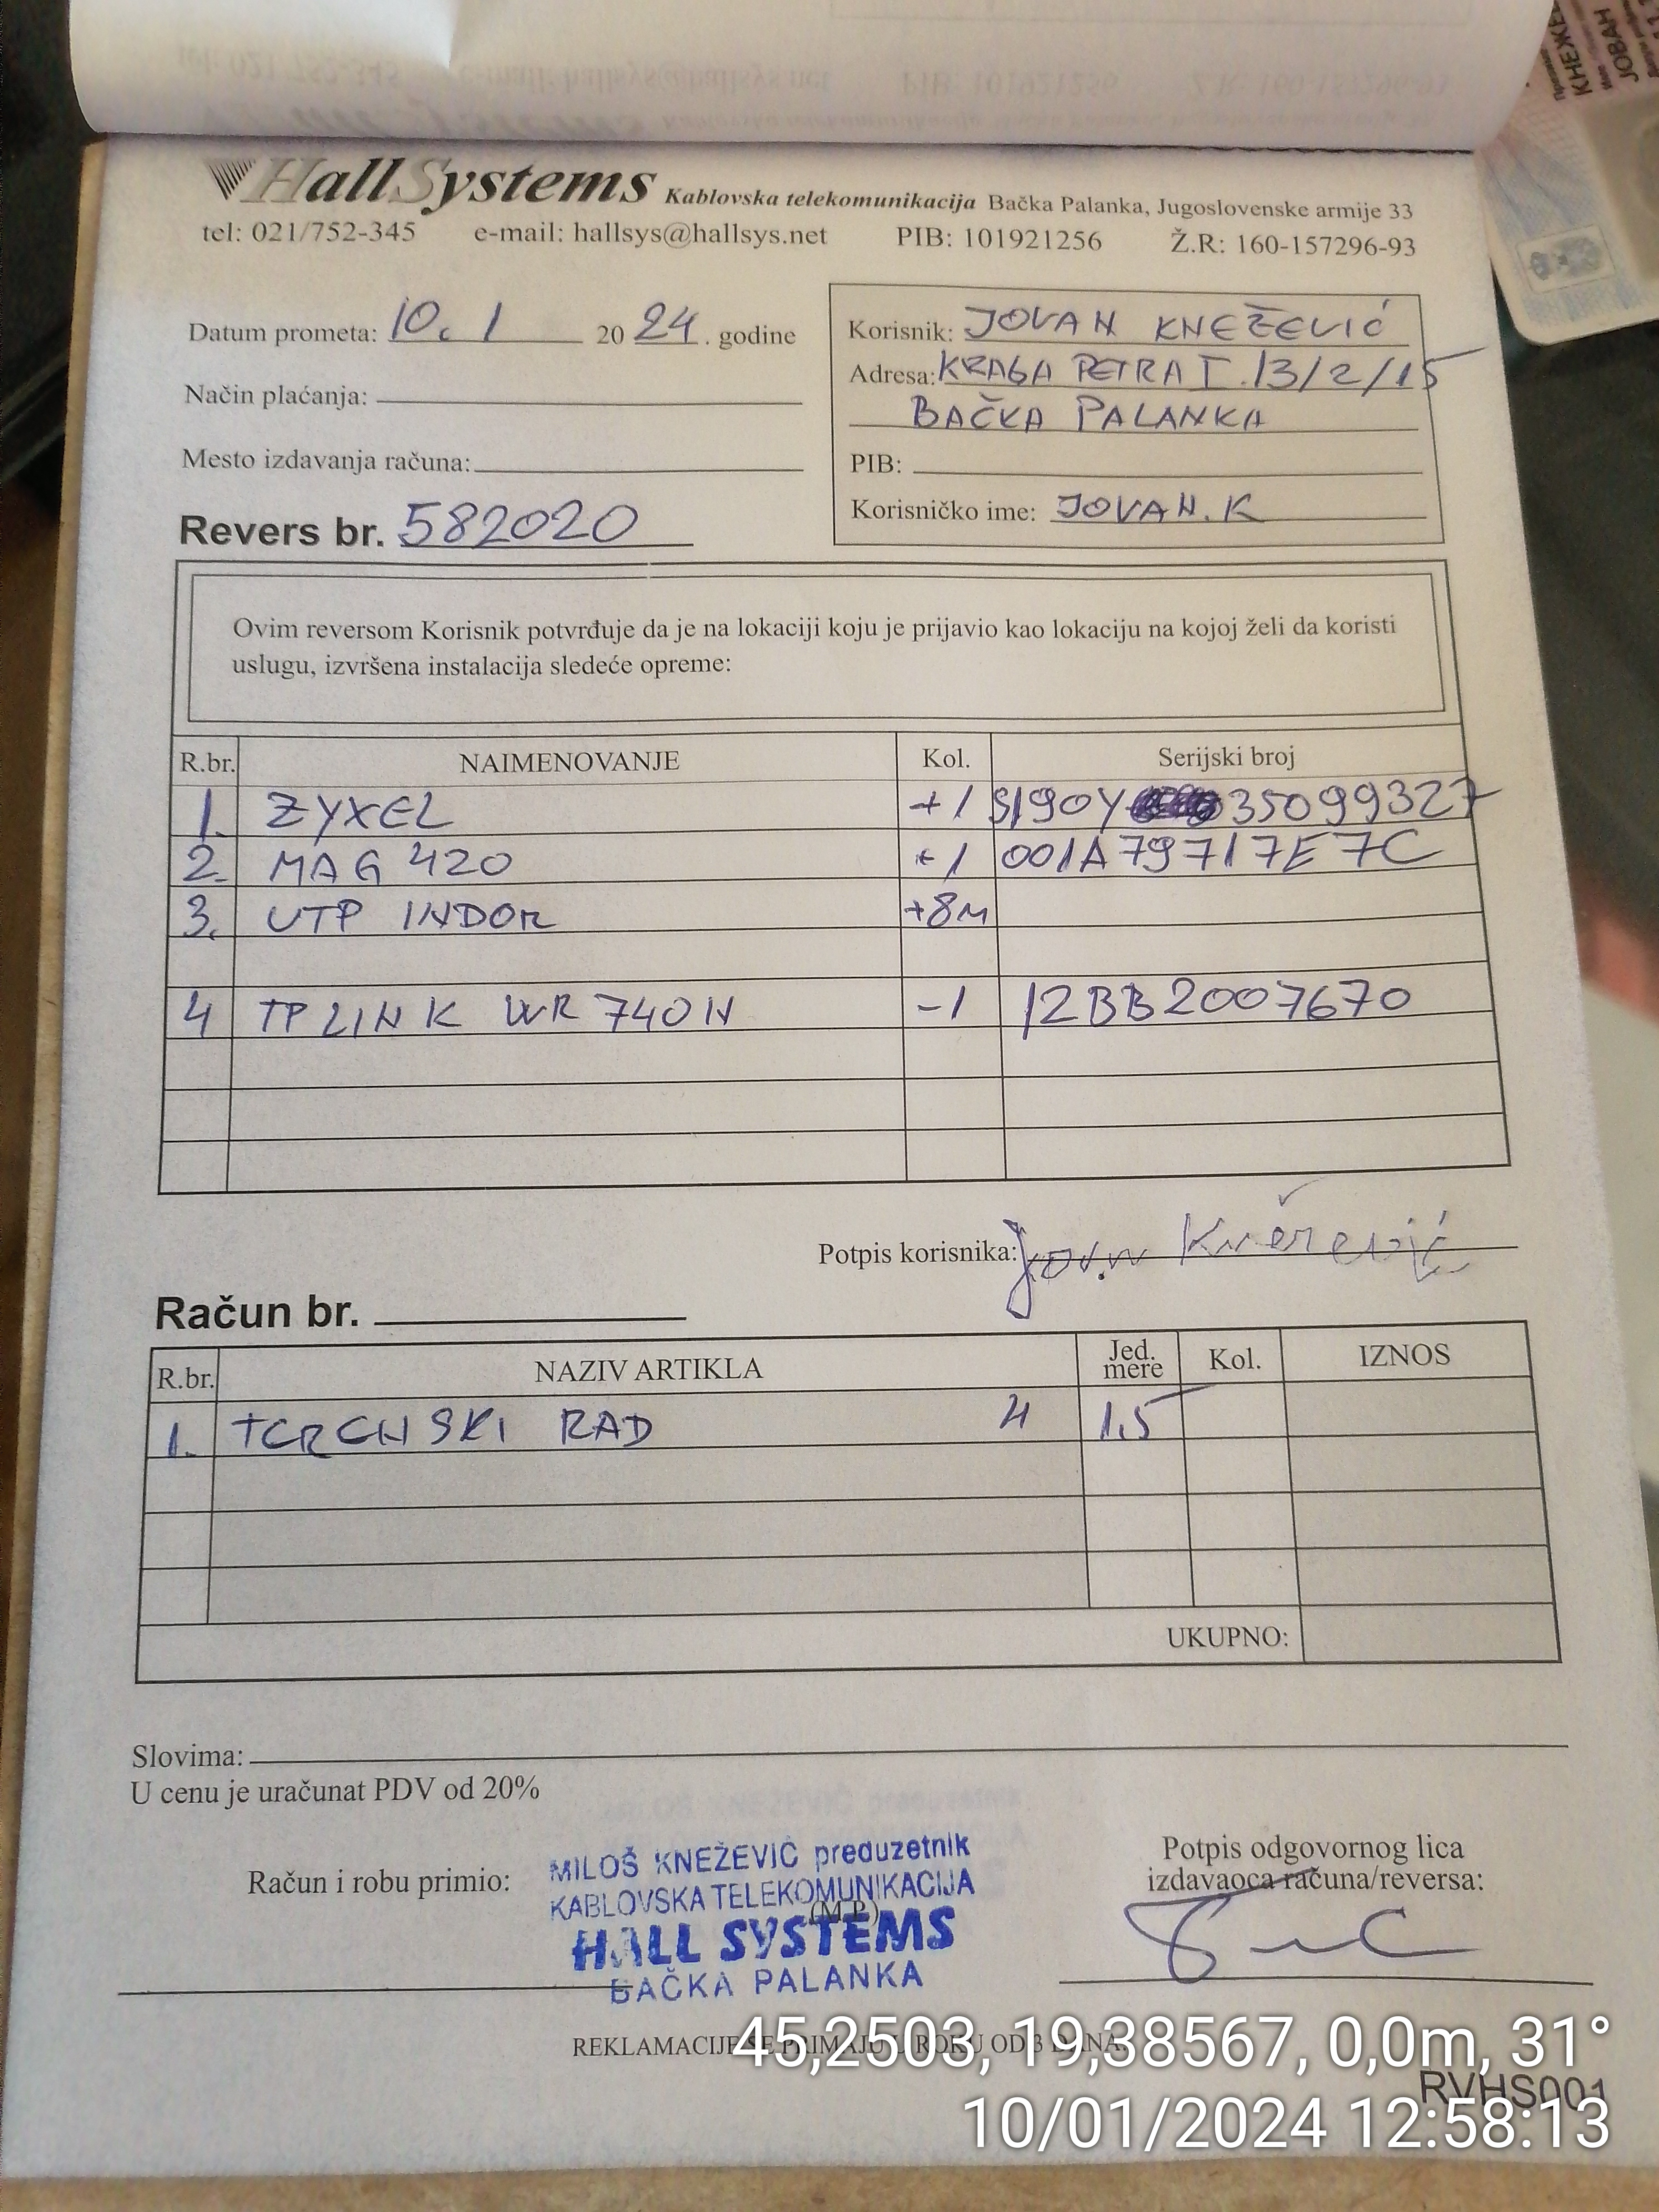 HallSystems Kablovska telekomunikacija Bačka Palanka, Jugoslovenske armije 33
tel: 021/752-345 e-mail: hallsys@hallsys.net PIB: 101921256 Ž.R: 160-157296-93
Datum prometa: 10. 1 20 24. godine
Način plaćanja:
Mesto izdavanja računa:
Revers br. 582020
Korisnik: JOVAN KNEŽEVIĆ
Adresa: KRAGA PETRA I. 13/2/15
BAČKA PALANKA
PIB:
Korisničko ime: JOVAN.K
Ovim reversom Korisnik potvrđuje da je na lokaciji koju je prijavio kao lokaciju na kojoj želi da koristi
uslugu, izvršena instalacija sledeće opreme:
R.br. NAIMENOVANJE Kol. Serijski broj
1. ZYXEL +1 S190Y 35099327
2. MAG 420 +1 001A79717E7C
3. UTP INDOR +8M
4 TPLINK WR740N -1 12BB2007670
Potpis korisnika: Jovan Knežević
Račun br.
R.br. NAZIV ARTIKLA Jed. mere Kol. IZNOS
1. TERENSKI RAD H 1.5
UKUPNO:
Slovima:
U cenu je uračunat PDV od 20%
Račun i robu primio:
MILOŠ KNEŽEVIĆ preduzetnik
KABLOVSKA TELEKOMUNIKACIJA
(M.P.)
HALL SYSTEMS
BAČKA PALANKA
Potpis odgovornog lica
izdavaoca računa/reversa:
REKLAMACIJE SE PRIMAJU U ROKU OD 3 DANA.
RVHS001
45,2503, 19,38567, 0,0m, 31°
10/01/2024 12:58:13
КНЕЖЕ
ЈОВАН